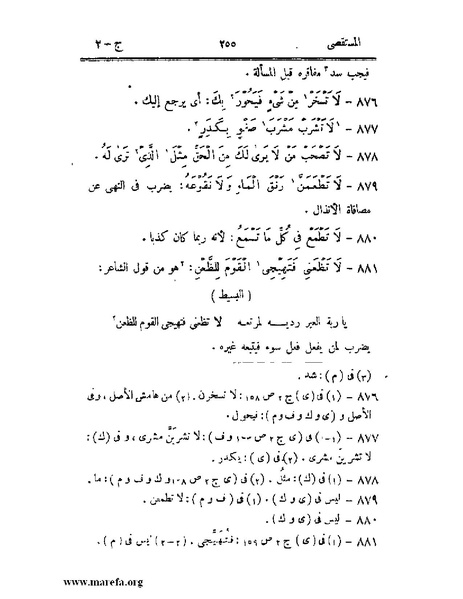 المستقصى ٢٥٥ ج - ٢
فيجب سد٣ مفاقره قبل المسألة .
٨٧٦ - لَا تَسْخَرْ١ مِنْ شَىْءٍ فَيَحُورَ٢ بِكَ: أى يرجع إليك .
٨٧٧ - ١لَا تَشْرَبْ مَشْرَبَ١ صَفْوٍ بِكَدَرٍ٢ .
٨٧٨ - لَا تَصْحَبْ مَنْ لَا يَرَىٰ لَكَ مِنَ الْحَقِّ مِثْلَ١ الَّذِىْ٢ تَرَىٰ لَهُ .
٨٧٩ - لَا تَطْعَمَنَّ١ رَنْقَ الْمَاءِ وَلَا نَقُوْعَهُ: يضرب فى النهى عن
مصافاة الأنذال .
٨٨٠ - لَا تَطْمَعْ فِى كُلِّ مَا تَسْمَعُ: لأنه ربما كان كذبا .
٨٨١ - لَا تَظْعَنِى فَتَهِيْجِى١ الْقَوْمَ لِلظَّعْنِ: ٢هو من قول الشاعر:
( البسيط )
يا ربة العير رديــه لمرتعه لا تظعنى فتهيجى القوم للظعن٢
يضرب لمن يفعل فعل سوء فيتبعه غيره .
(٣) فى (م): شد .
٨٧٦ - (١) فى (ى) ج ٢ ص ١٥٨: لا تسخرن . (٢) من هامش الأصل ، وفى
الأصل و (ى و ك و ف و م): فيحول .
٨٧٧ - (١-١) فى (ى ج ٢ ص ١٠٠ و ف): لا تشربَنَّ مشرى ، و فى (ك):
لا تشربَن مشرى . (٢) فى (ى): يكدر .
٨٧٨ - (١) فى (ك): مثلُ . (٢) فى (ى ج ٢ ص ١٠٨ و ك و ف و م): ما .
٨٧٩ - ليس فى (ى و ك) . (١) فى (ف و م): لا تطعمن .
٨٨٠ - ليس فى (ى و ك) .
٨٨١ - (١) فى (ى) ج ٢ ص ١٥٩: فَتُهَيِّجِى . (٢-٢) ليس فى (م) .
www.marefa.org